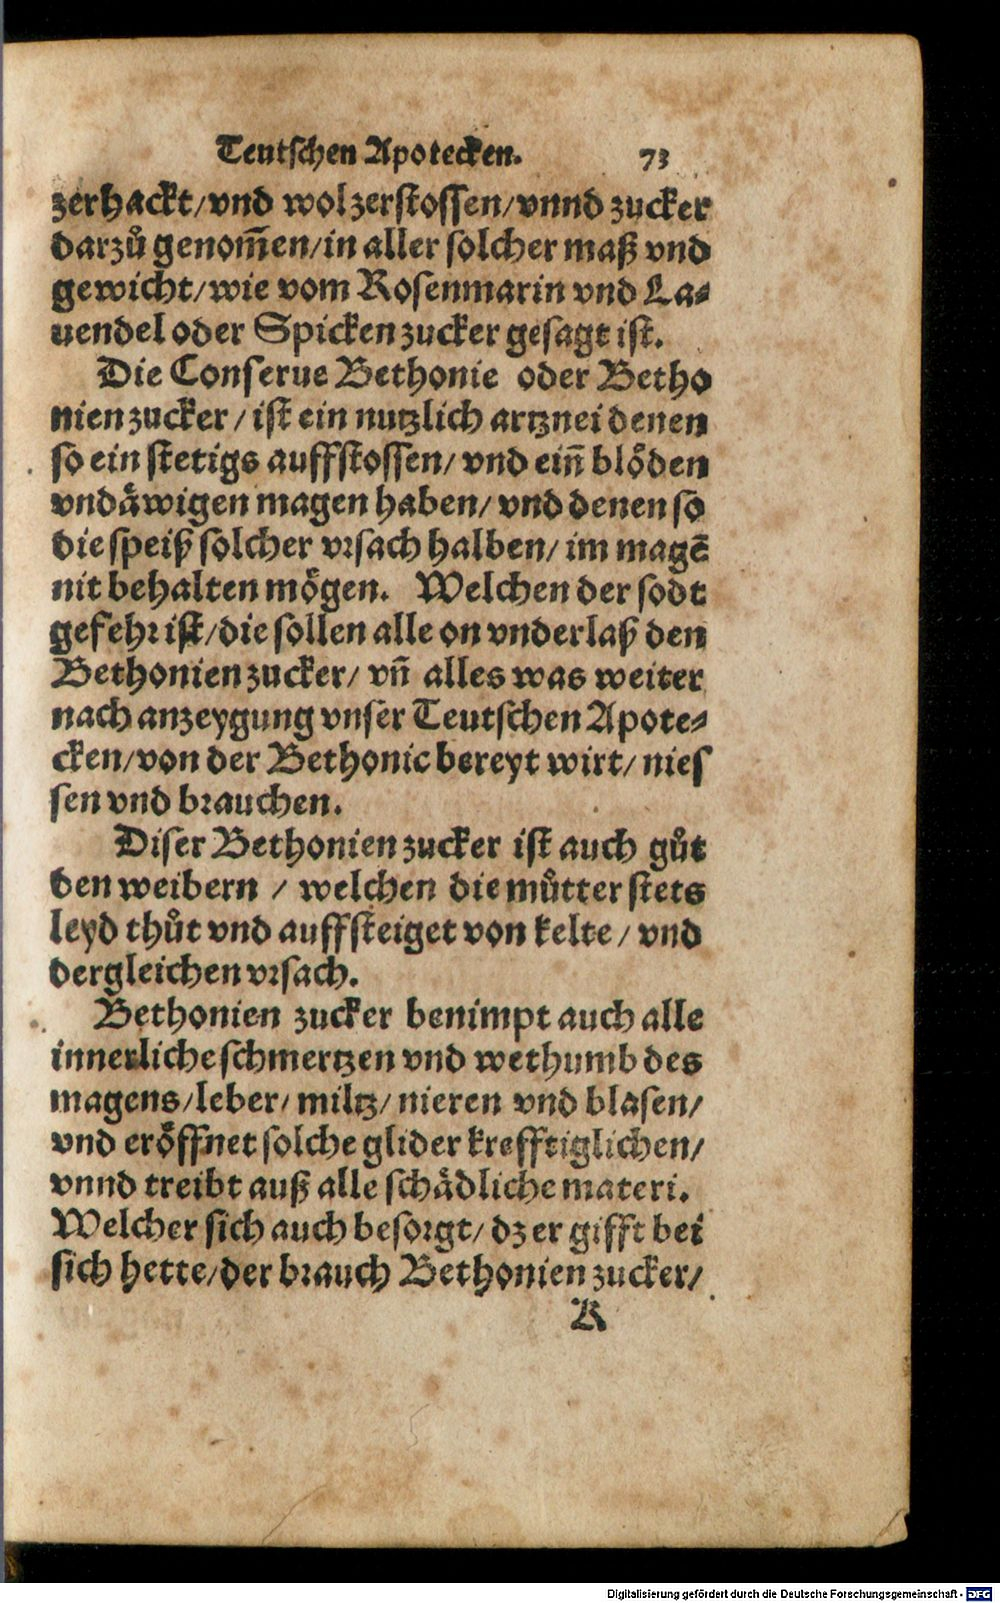 Teutschen Apotecken. 73
zerhackt/vnd wol zerstossen/vnnd zucker
darzů genom̃en/in aller solcher maß vnd
gewicht/wie vom Rosenmarin vnd La⸗
uendel oder Spicken zucker gesagt ist.
Die Conserue Bethonie oder Betho
nien zucker/ ist ein nutzlich artznei denen
so ein stetigs auffstossen/ vnd ein̄ blöden
vndäwigen magen haben/ vnd denen so
die speiß solcher vrsach halben/ im magē
nit behalten mögen. Welchen der sodt
gefehr ist/die sollen alle on vnderlaß den
Bethonien zucker/ vn̄ alles was weiter
nach anzeygung vnser Teutschen Apote⸗
cken/von der Bethonic bereyt wirt/ nies
sen vnd brauchen.
Diser Bethonien zucker ist auch gůt
den weibern / welchen die můtter stets
leyd thůt vnd auffsteiget von kelte/ vnd
dergleichen vrsach.
Bethonien zucker benimpt auch alle
innerliche schmertzen vnd wethumb des
magens/leber/ miltz/ nieren vnd blasen/
vnd eröffnet solche glider krefftiglichen/
vnnd treibt auß alle schädliche materi.
Welcher sich auch besorgt/ dz er gifft bei
sich hette/der brauch Bethonien zucker/
K
Digitalisierung gefördert durch die Deutsche Forschungsgemeinschaft - DFG